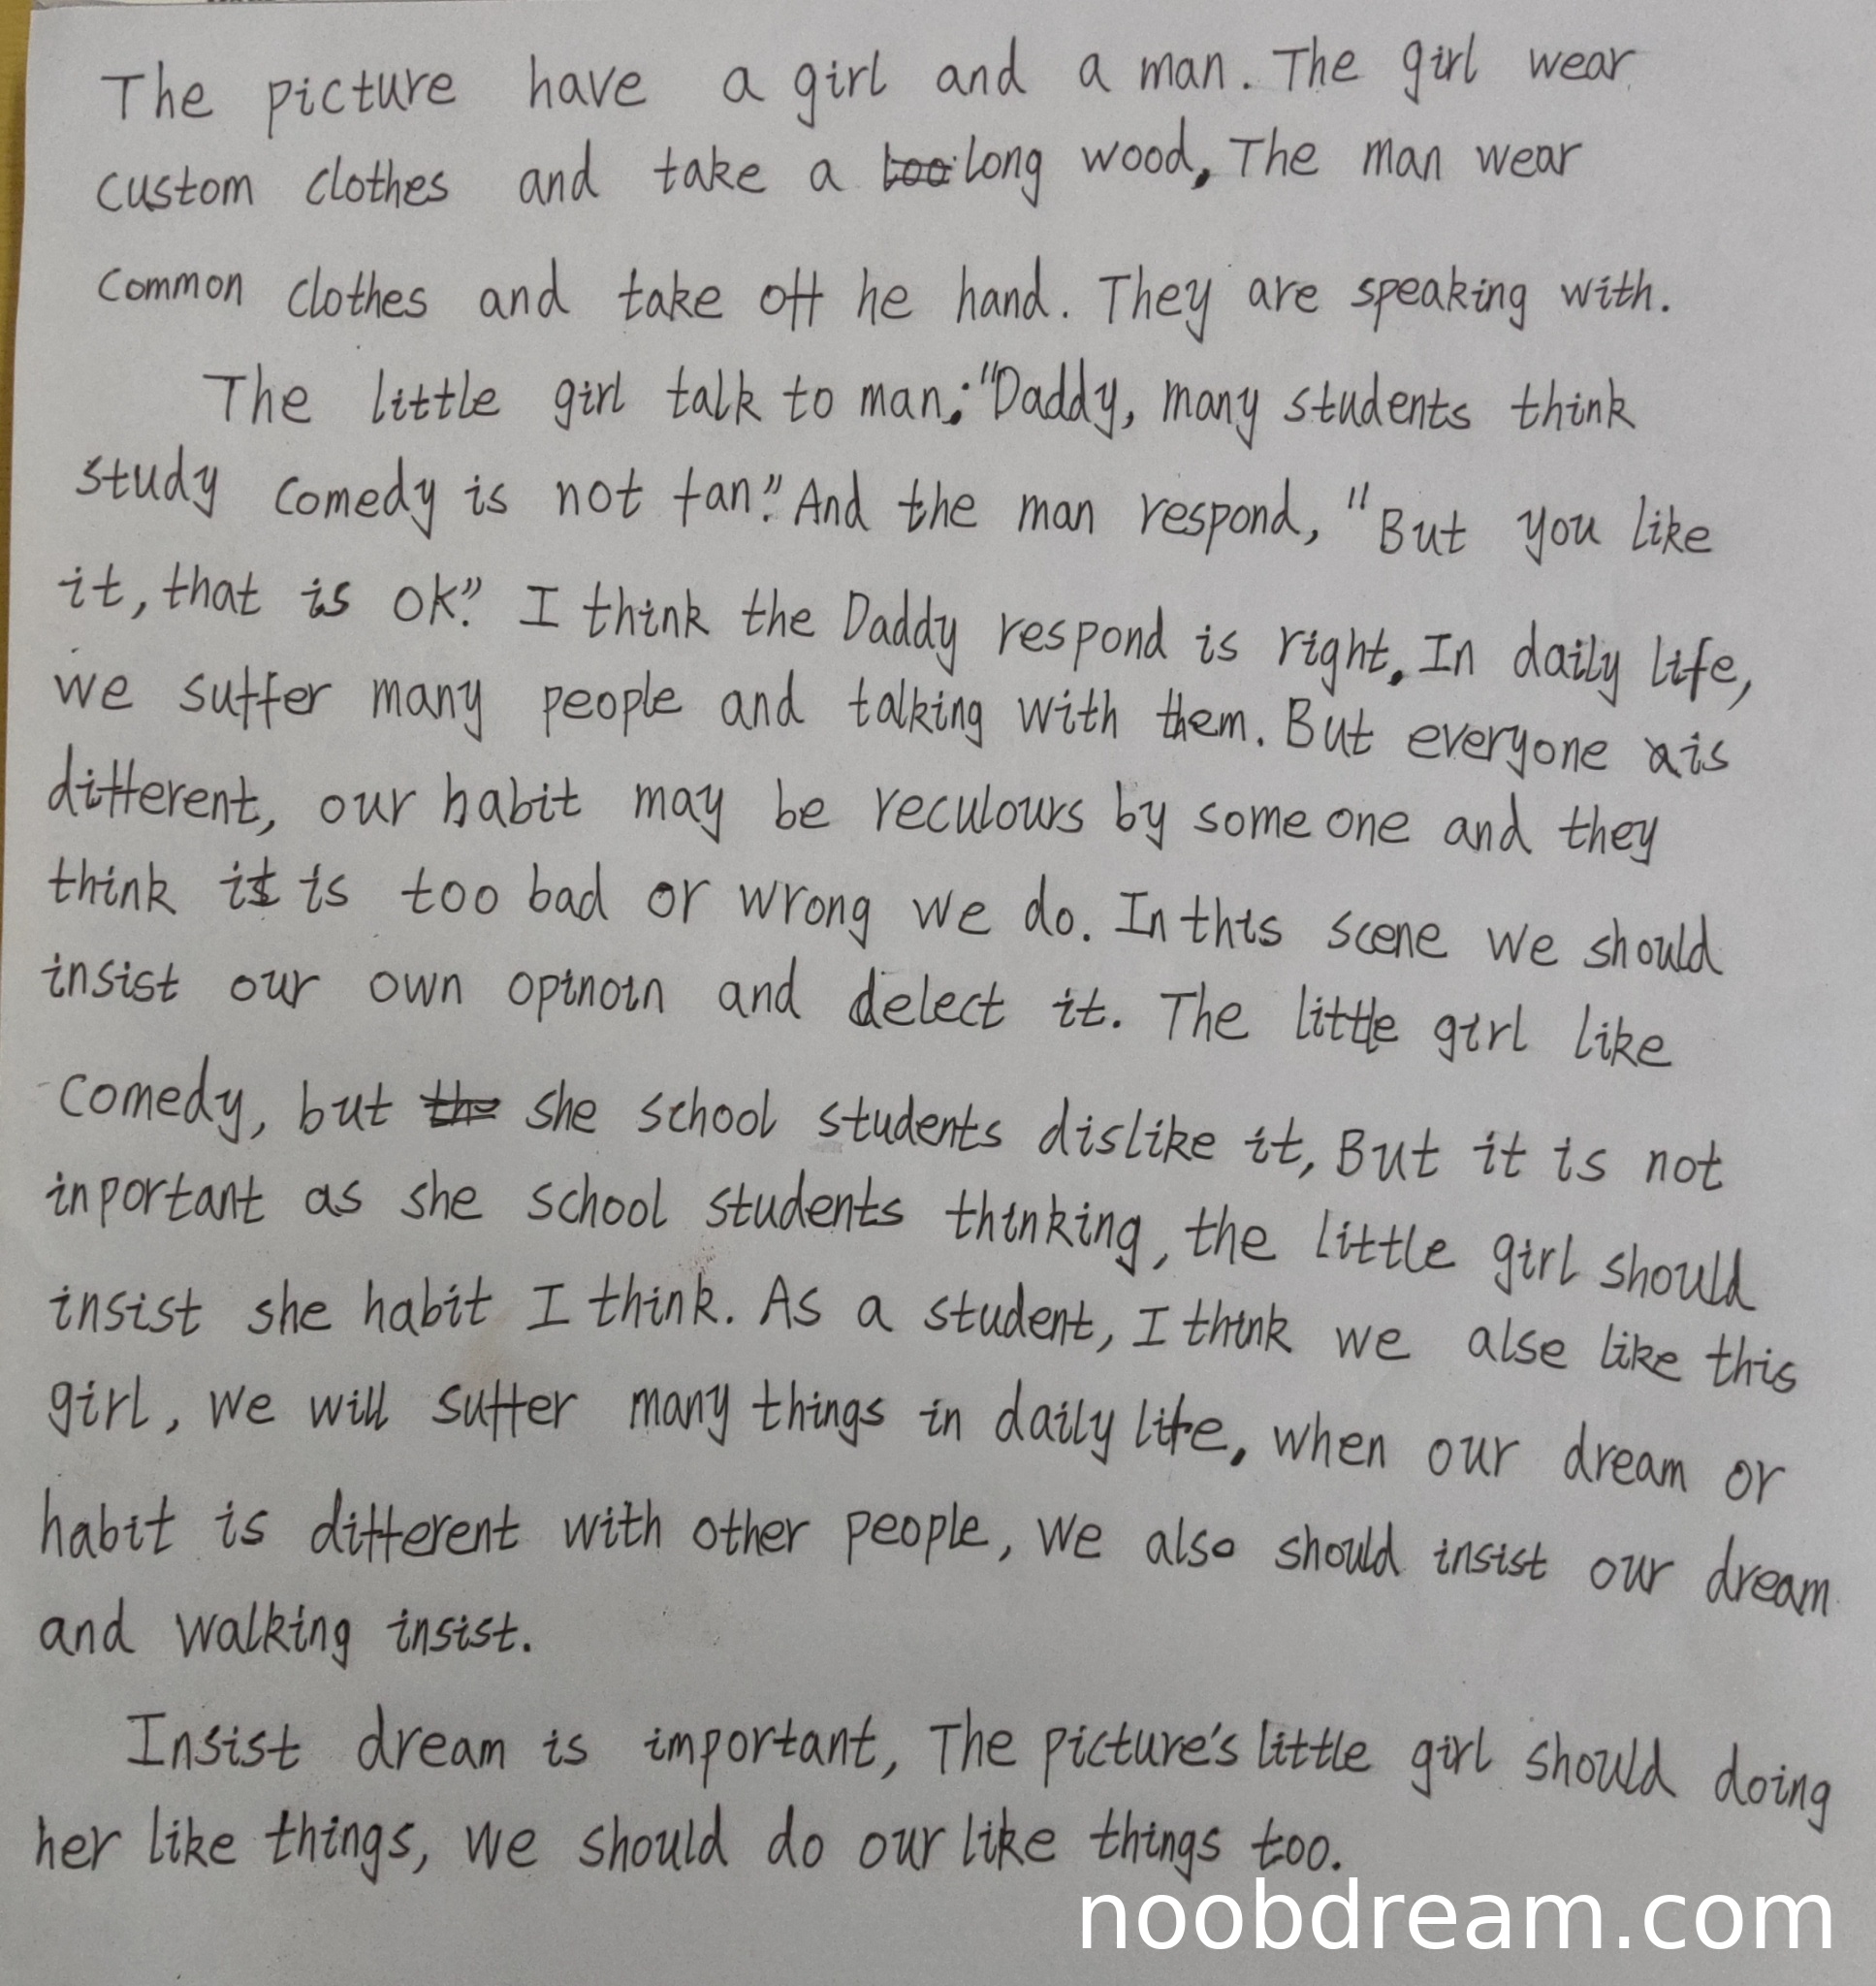 The picture have a girl and a man. The girl wear
custom clothes and take a too long wood, The man wear
common clothes and take off he hand. They are speaking with.
The little girl talk to man: "Daddy, many students think
study comedy is not fan." And the man respond, "But you like
it, that is ok." I think the Daddy respond is right. In daily life,
we suffer many people and talking with them. But everyone is
different, our habit may be reculours by some one and they
think it is too bad or wrong we do. In this scene we should
insist our own opinoin and delect it. The little girl like
comedy, but the she school students dislike it, But it is not
inportant as she school students thinking, the little girl should
insist she habit I think. As a student, I think we alse like this
girl, we will suffer many things in daily life, when our dream or
habit is different with other people, we also should insist our dream
and walking insist.
Insist dream is important, The picture's little girl should doing
her like things, we should do our like things too.
noobdream.com